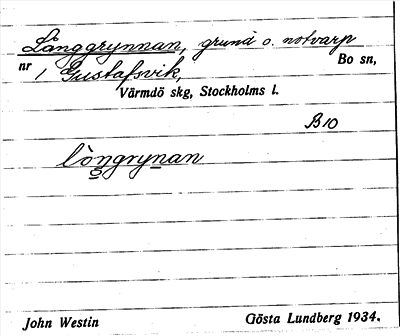 Långgrynnan, grund o. notvarp
nr 1 Gustafsvik, Bo sn,
Värmdö skg, Stockholms l.
B10
lòngrynan
John Westin Gösta Lundberg 1934.